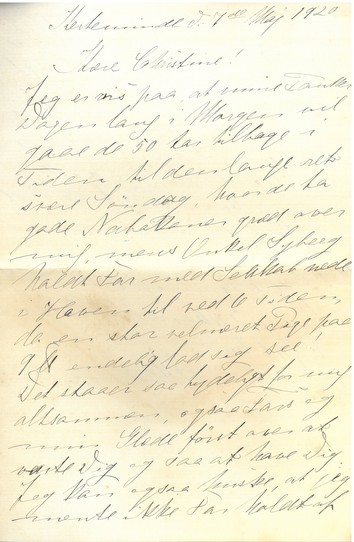 Kerteminde d. 7de Maj 1920
Kære Christine!
Jeg er vis paa at mine Tanker
Dagen lang i Morgen vil
gaae de 50 Aar tilbage i
Tiden til den lange ret
svære Søndag, hvor de
gode græd over
mig, mens Onkel Syberg
holdt Far med Selskab nede
i Haven til ved 6 Tiden,
da en stor velnæret Pige paa
9 endelig lod sig see,
Det staaer saa tydeligt for mig
altsammen, ogsaa Fars og
min Glæde først over at
vente Dig og saa at have Dig
Jeg kan ogsaa huske, at jeg
mente ikke Far holdt af